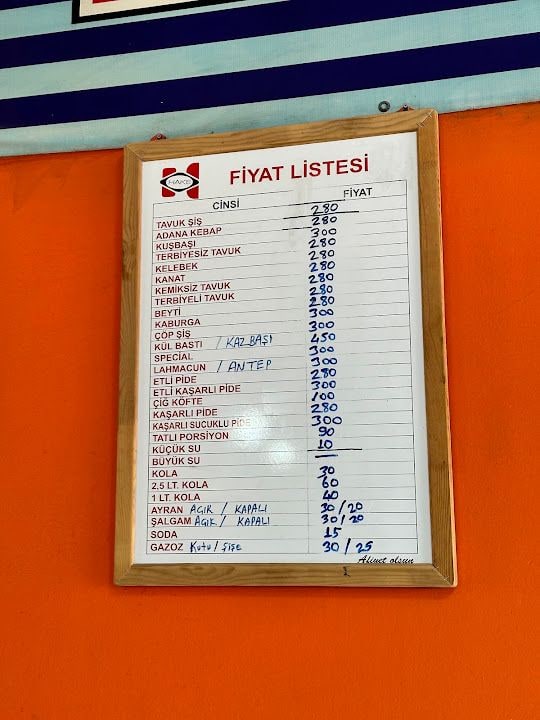 HAKE
FİYAT LİSTESİ
CİNSİ FİYAT
TAVUK ŞİŞ 280
ADANA KEBAP 280
KUŞBAŞI 300
TERBİYESİZ TAVUK 280
KELEBEK 280
KANAT 280
KEMİKSİZ TAVUK 280
TERBİYELİ TAVUK 280
BEYTİ 280
KABURGA 300
ÇÖP ŞİŞ 300
KÜL BASTI / KAZBAŞI 450
SPECIAL 300
LAHMACUN / ANTEP 300
ETLİ PİDE 280
ETLİ KAŞARLI PİDE 300
ÇİĞ KÖFTE 100
KAŞARLI PİDE 280
KAŞARLI SUCUKLU PİDE 300
TATLI PORSİYON 90
KÜÇÜK SU 10
BÜYÜK SU —
KOLA 30
2,5 LT. KOLA 60
1 LT. KOLA 40
AYRAN AÇIK / KAPALI 30/20
ŞALGAM AÇIK / KAPALI 30/20
SODA 15
GAZOZ Kutu / Şişe 30 / 25
Afiyet olsun